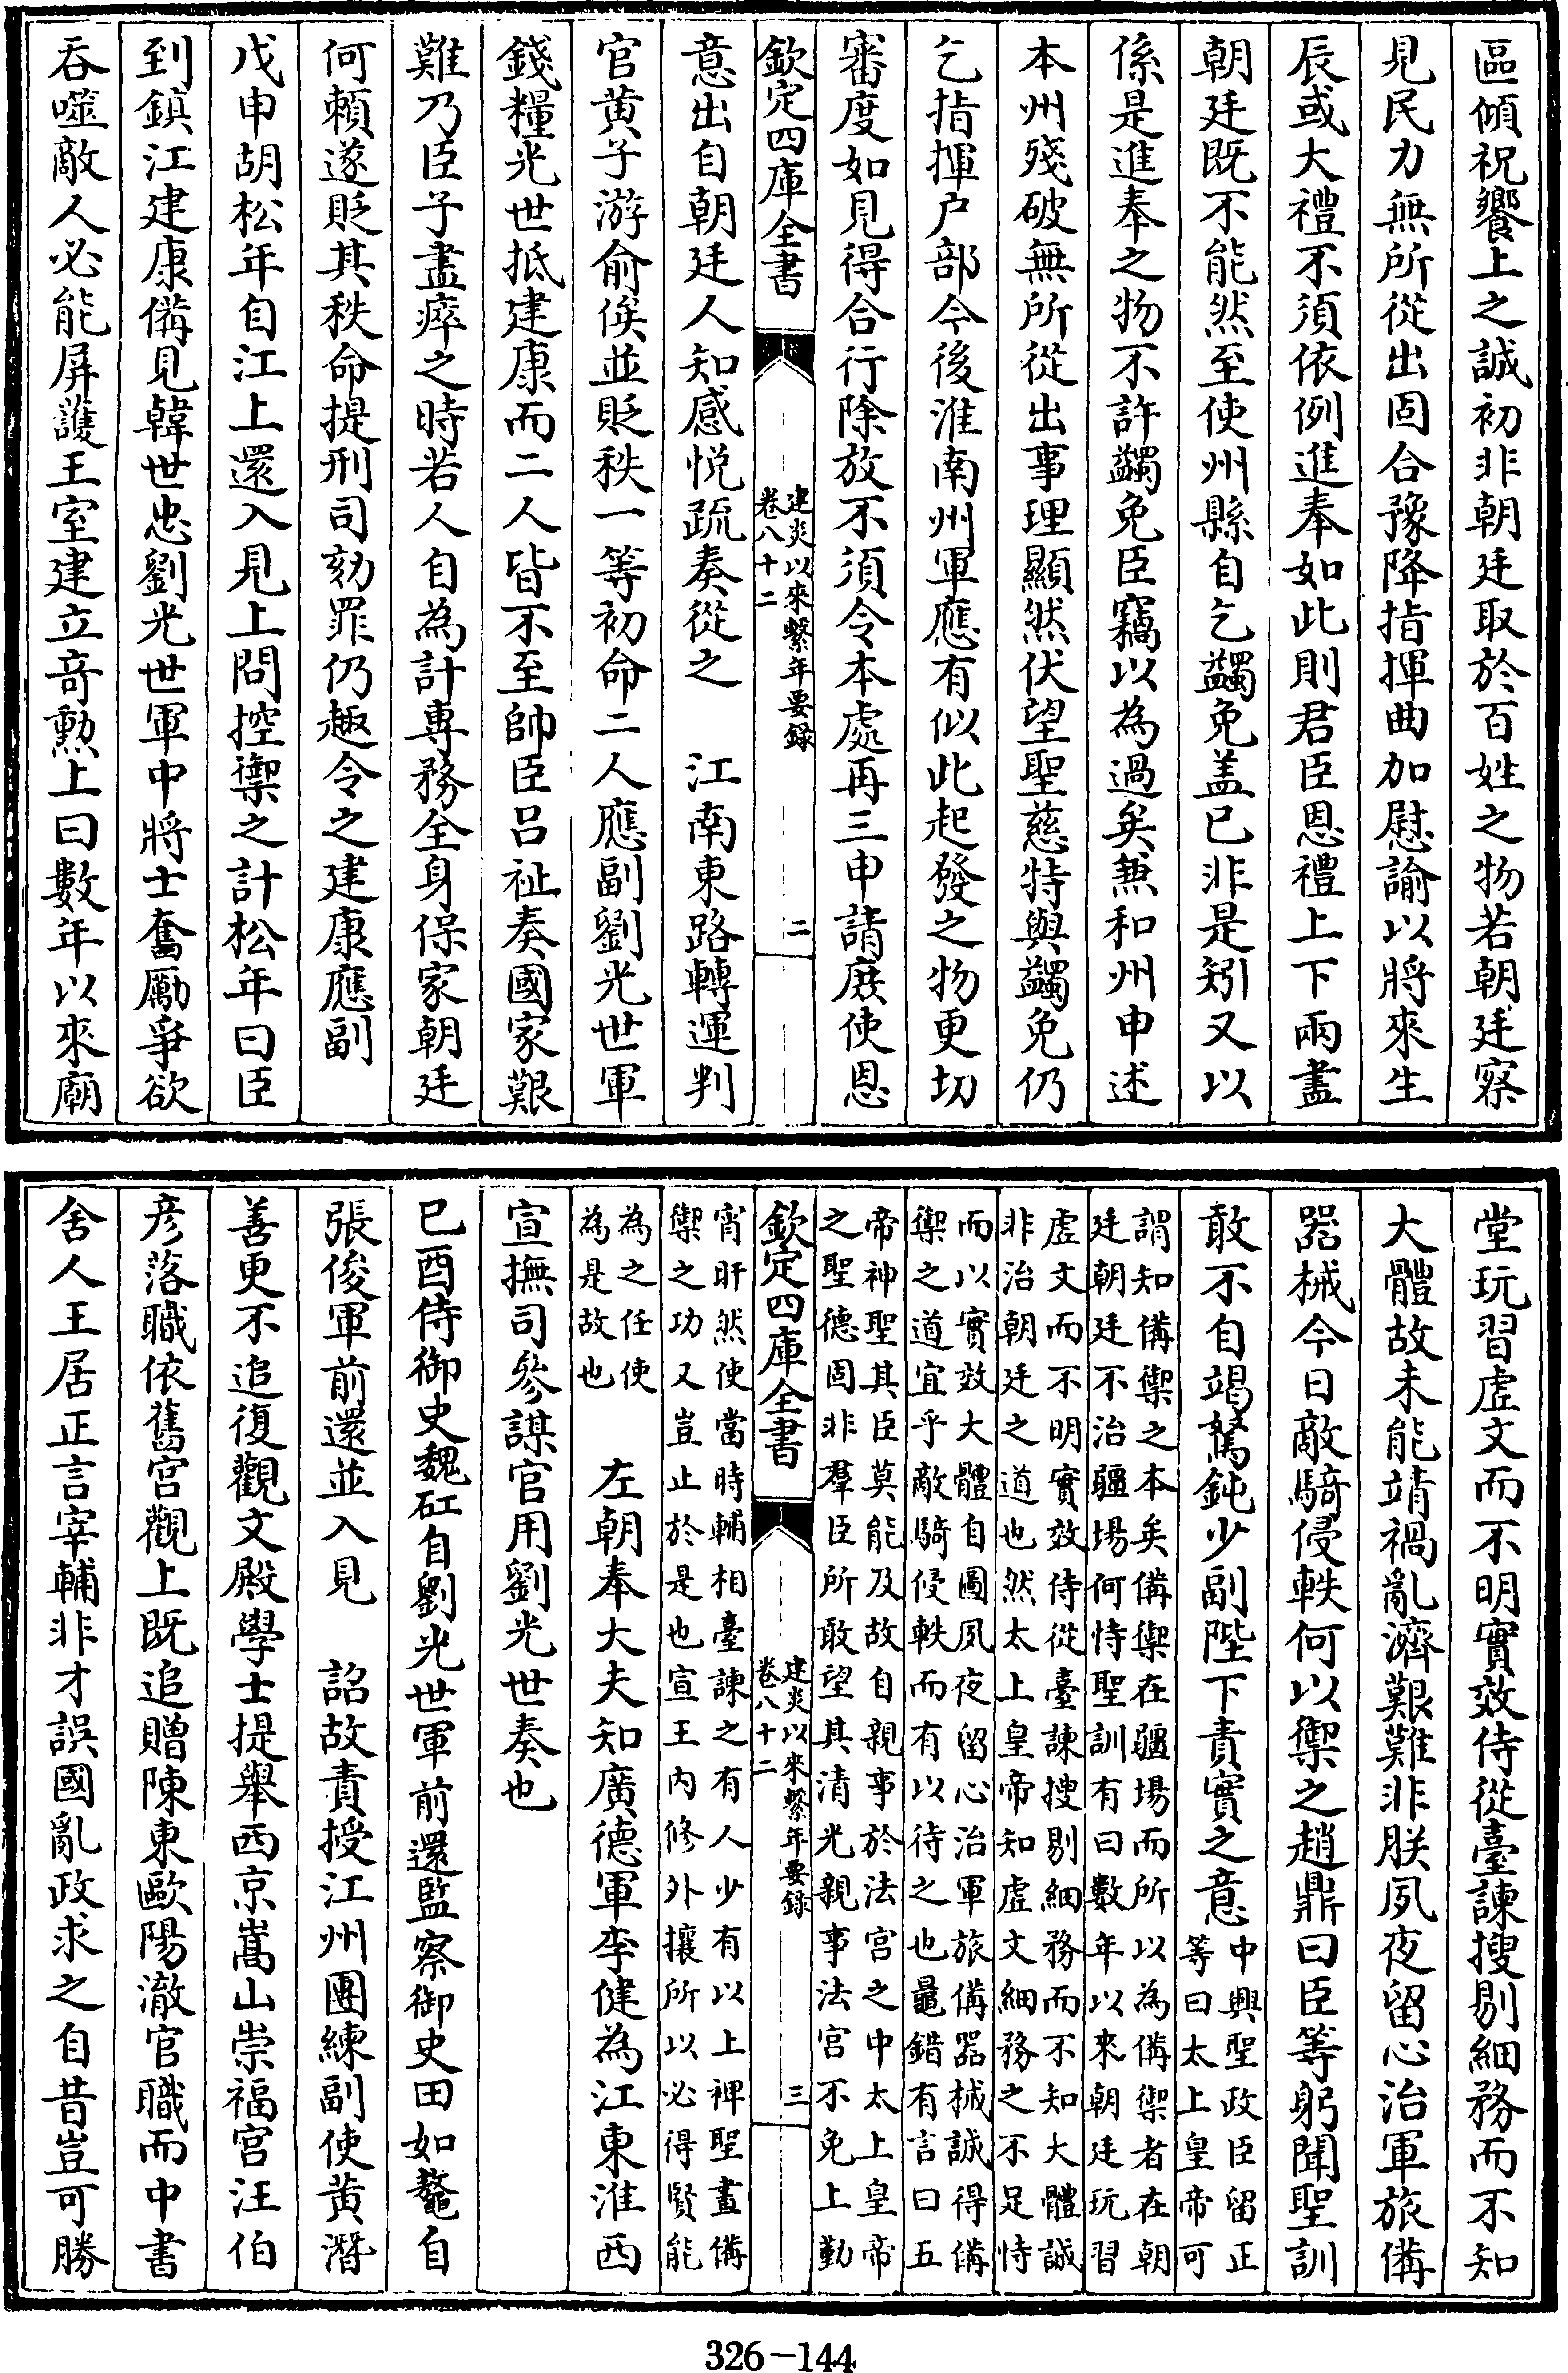 區傾祝饗上之誠初非朝廷取於百姓之物若朝廷察
見民力無所從出固合豫降指揮曲加慰諭以將來生
辰或大禮不須依例進奉如此則君臣恩禮上下兩盡
朝廷既不能然至使州縣自乞蠲免盖已非是矧又以
係是進奉之物不許蠲免臣竊以為過矣兼和州申述
本州殘破無所從出事理顯然伏望聖慈特與蠲免仍
乞指揮户部今後淮南州軍應有似此起發之物更切
審度如見得合行除放不須令本處再三申請庶使恩
欽定四庫全書
建炎以來繫年要録
卷八十二
二
意出自朝廷人知感悦疏奏從之　江南東路轉運判
官黄子游俞俟並貶秩一等初命二人應副劉光世軍
錢糧光世抵建康而二人皆不至帥臣吕祉奏國家艱
難乃臣子盡瘁之時若人自為計專務全身保家朝廷
何賴遂貶其秩命提刑司劾罪仍趣令之建康應副
戊申胡松年自江上還入見上問控禦之計松年曰臣
到鎮江建康備見韓世忠劉光世軍中將士奮勵爭欲
吞噬敵人必能屏護王室建立竒勲上曰數年以來廟
堂玩習虛文而不明實效侍從臺諫搜剔細務而不知
大體故未能靖禍亂濟艱難非朕夙夜留心治軍旅備
器械今日敵騎侵軼何以禦之趙鼎曰臣等躬聞聖訓
敢不自竭駑鈍少副陛下責實之意
中興聖政臣留正
等曰太上皇帝可
謂知備禦之本矣備禦在疆場而所以為備禦者在朝
廷朝廷不治疆場何恃聖訓有曰數年以來朝廷玩習
虛文而不明實效侍從臺諫搜剔細務而不知大體誠
非治朝廷之道也然太上皇帝知虛文細務之不足恃
而以實效大體自圖夙夜留心治軍旅備器械誠得備
禦之道宜乎敵騎侵軼而有以待之也鼂錯有言曰五
帝神聖其臣莫能及故自親事於法宫之中太上皇帝
之聖德固非羣臣所敢望其清光親事法宫不免上勤
欽定四庫全書
建炎以來繫年要録
卷八十二
三
宵旰然使當時輔相臺諫之有人少有以上裨聖畫備
禦之功又豈止於是也宣王内修外攘所以必得賢能
為之任使
為是故也
左朝奉大夫知廣德軍李健為江東淮西
宣撫司參謀官用劉光世奏也
已酉侍御史魏矼自劉光世軍前還監察御史田如鼇自
張俊軍前還並入見　詔故責授江州團練副使黄潛
善更不追復觀文殿學士提舉西京嵩山崇福宫汪伯
彦落職依舊宫觀上既追贈陳東歐陽澈官職而中書
舍人王居正言宰輔非才誤國亂政求之自昔豈可勝
326-144